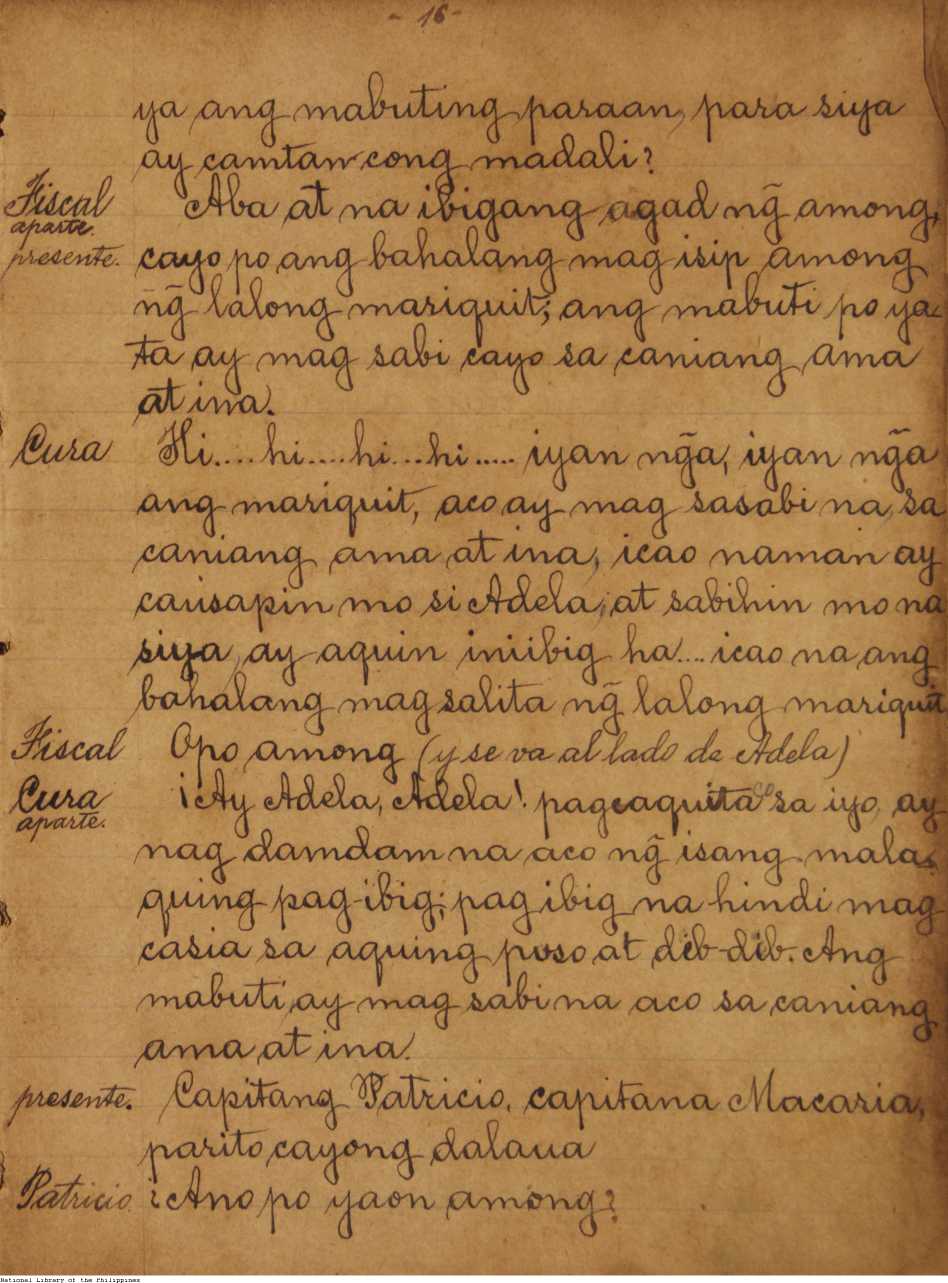 - 16 -
ya ang mabuting paraan, para siya
ay camtan cong madali?
Fiscal Aba at na ibigang agad ng̃ among,
aparte.
presente. cayo po ang bahalang mag isip among
ng̃ lalong mariquit; ang mabuti po ya-
ta ay mag sabi cayo sa caniang ama
at ina.
Cura Hi.... hi.... hi... hi..... iyan ng̃a, iyan ng̃a
ang mariquit, aco ay mag sasabi na sa
caniang ama at ina, icao naman ay
causapin mo si Adela, at sabihin mo na
siya ay aquin iniibig ha.... icao na ang
bahalang mag salita ng̃ lalong mariquit
Fiscal Opo among (y se va al lado de Adela)
Cura ¡Ay Adela, Adela! pagcaquita co sa iyo, ay
aparte.
nag damdam na aco ng̃ isang mala-
quing pag-ibig; pag ibig na hindi mag
casia sa aquing puso at dib-dib. Ang
mabuti ay mag sabi na aco sa caniang
ama at ina.
presente. Capitang Patricio, capitana Macaria,
parito cayong dalaua
Patricio ¿Ano po yaon among?
National Library of the Philippines